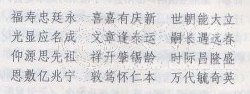 福寿忠廷永 喜嘉有庆新 世朝能大立
光显应名成 文章逢泰运 嗣长遇远春
仰源思先祖 祥开肇锡龄 时际昌隆盛
恩敷亿兆宁 敦笃怀仁本 万代毓奇英